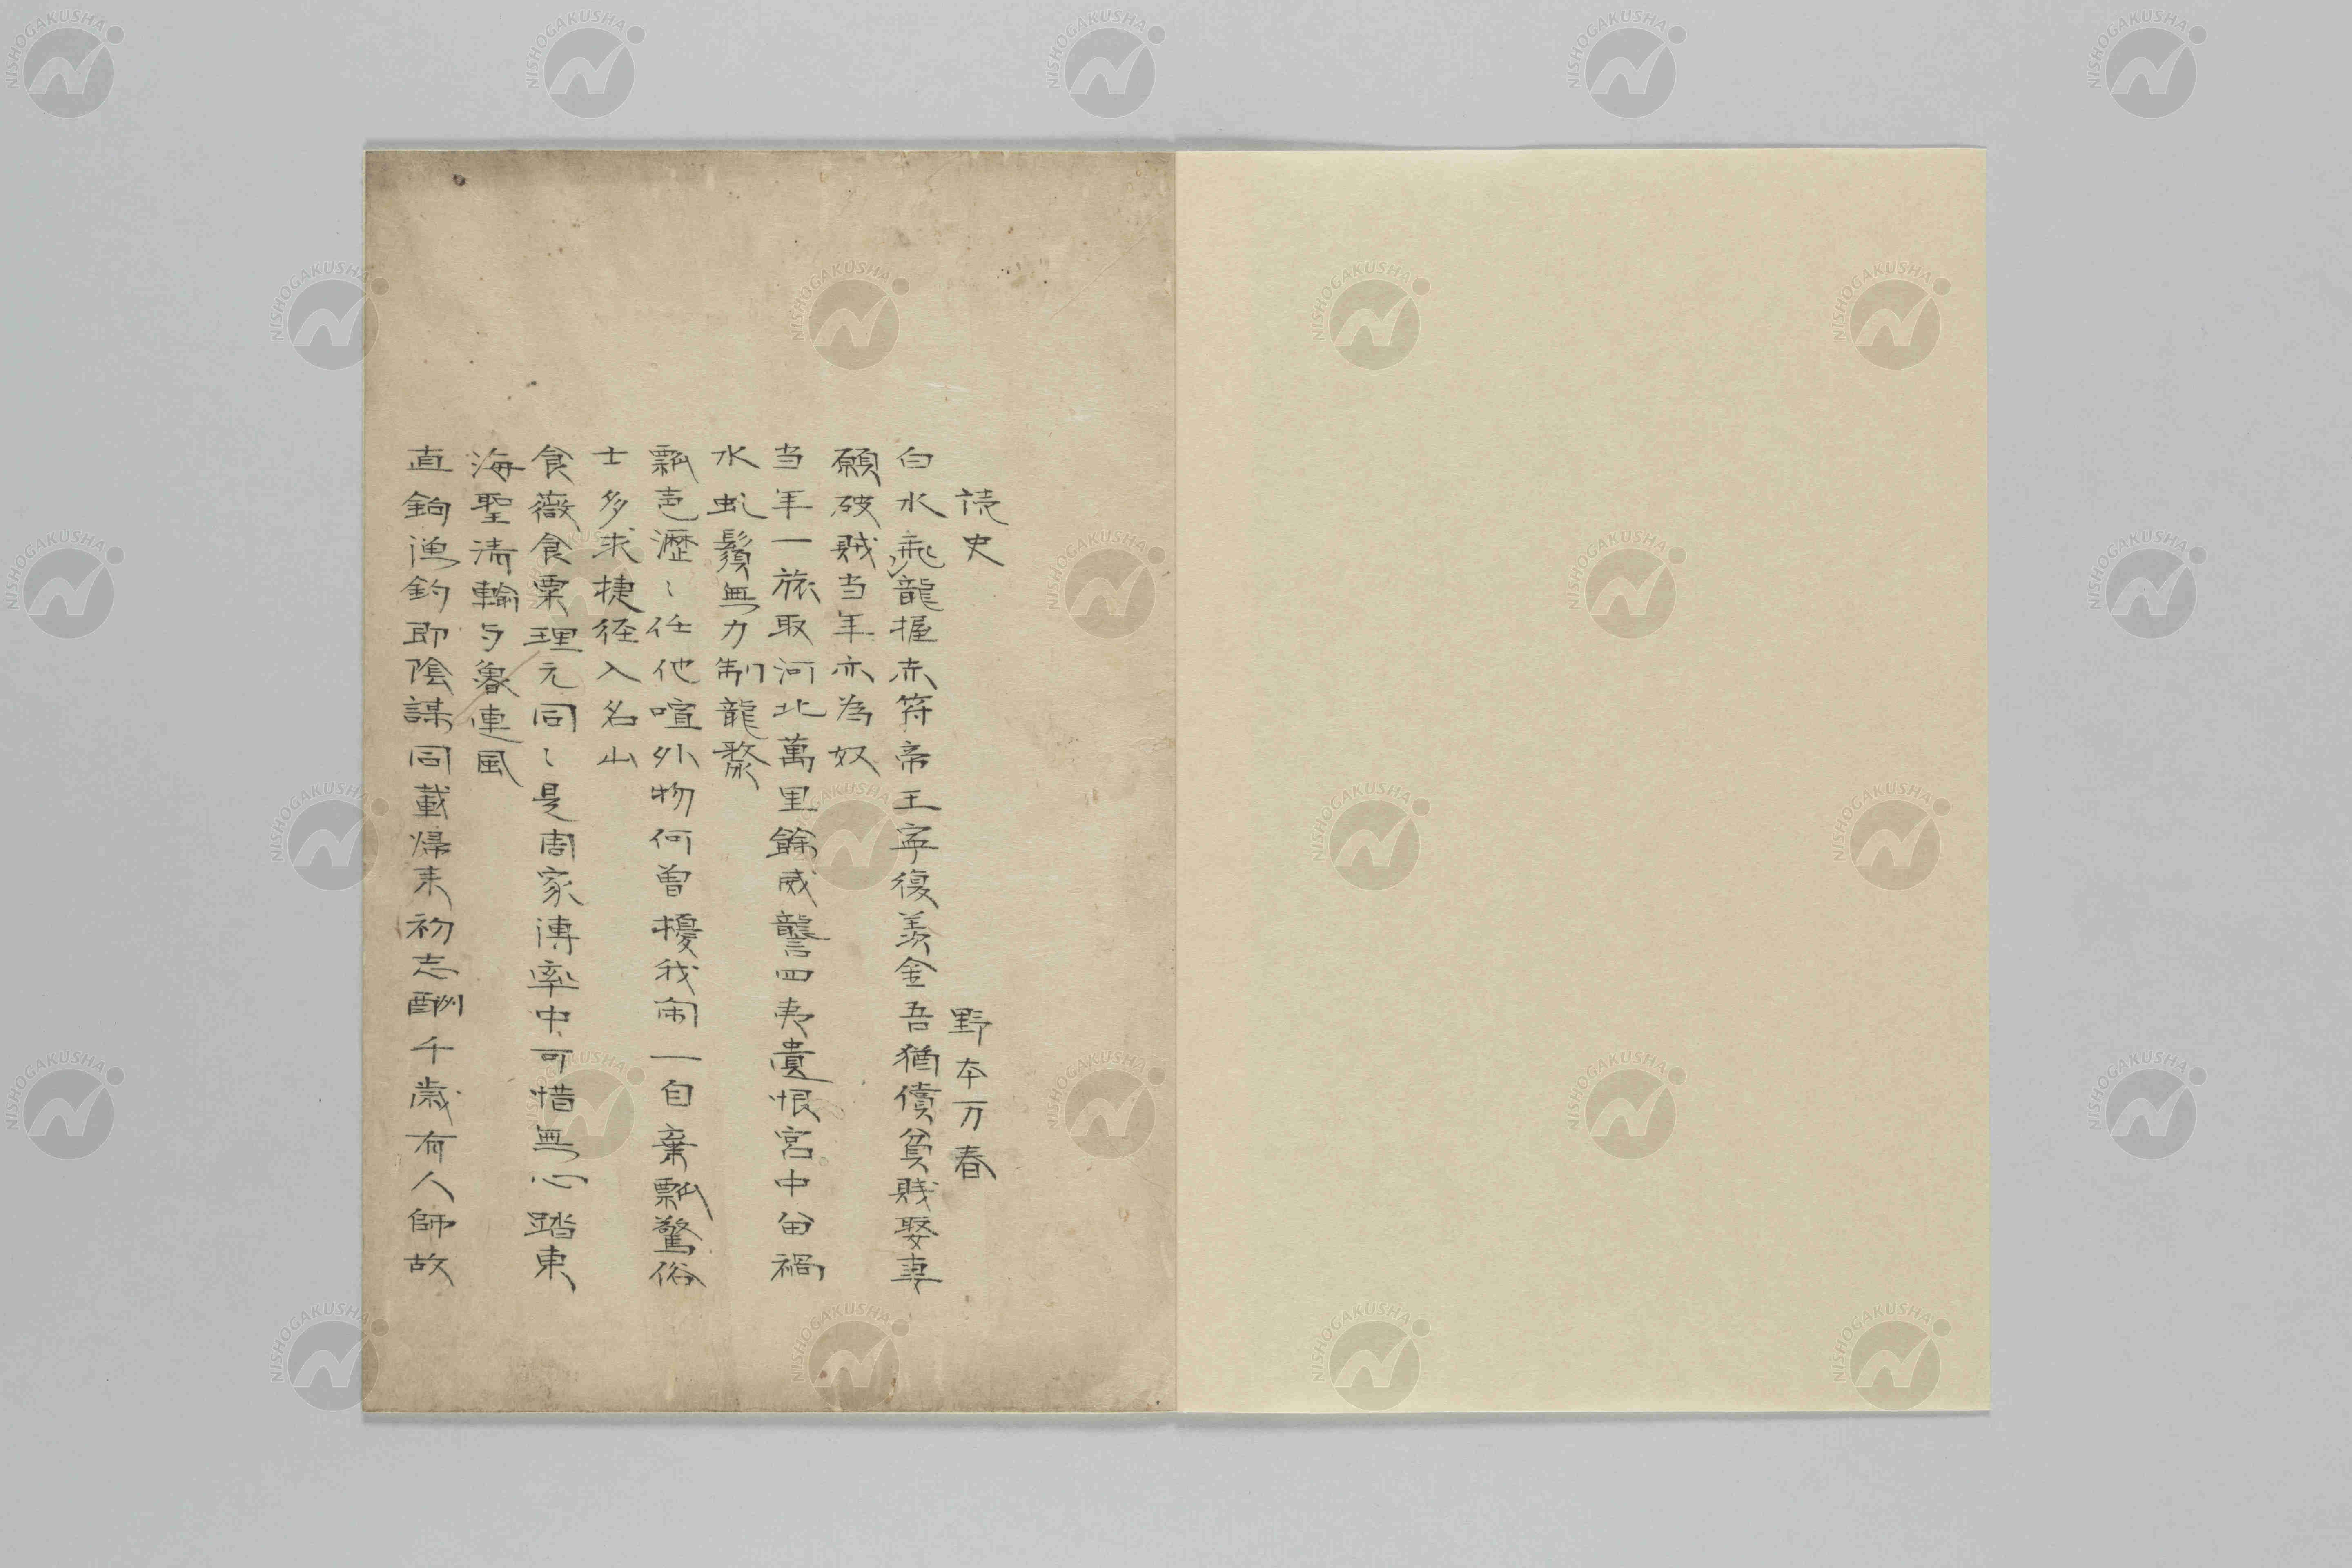 読史
野本万春
白水飛龍握赤符帝王寧復羨金吾猶償貧賤娶妻
願破賊当年亦為奴
当年一旅取河北萬里餘威讋四夷遺恨宮中留禍
水虬鬚無力制龍漦
瓢声瀝〻任他喧外物何曽擾我閑一自棄瓢驚俗
士多求捷径入名山
食薇食粟理元同〻是周家溥率中可惜無心踏東
海聖清輸与魯連風
直鉤漁釣即陰謀同載帰来初志酬千歳有人師故
NISHOGAKUSHA